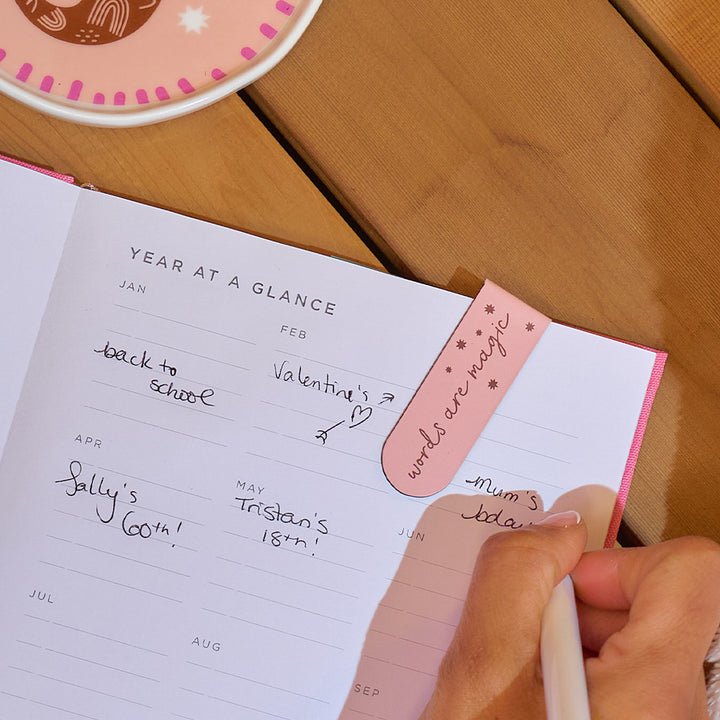 YEAR AT A GLANCE
JAN
back to
school
FEB
Valentine's
words are magic
APR
Sally's
60th!
MAY
Tristan's
18th!
Mum's
JUN
JUL
AUG
SEP